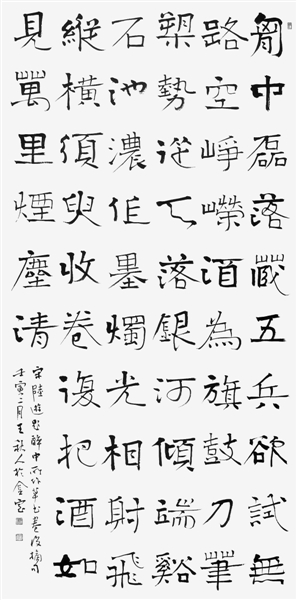 胷中磊落藏五兵欲試無
路空崢嶸酒為旗鼓刀筆
槊勢從天落銀河傾端谿
石池濃作墨燭光相射飛
縱橫須臾收卷復把酒如
見萬里煙塵清
宋陸游題醉中所作草書卷後摘句
壬寅二月王秋人於